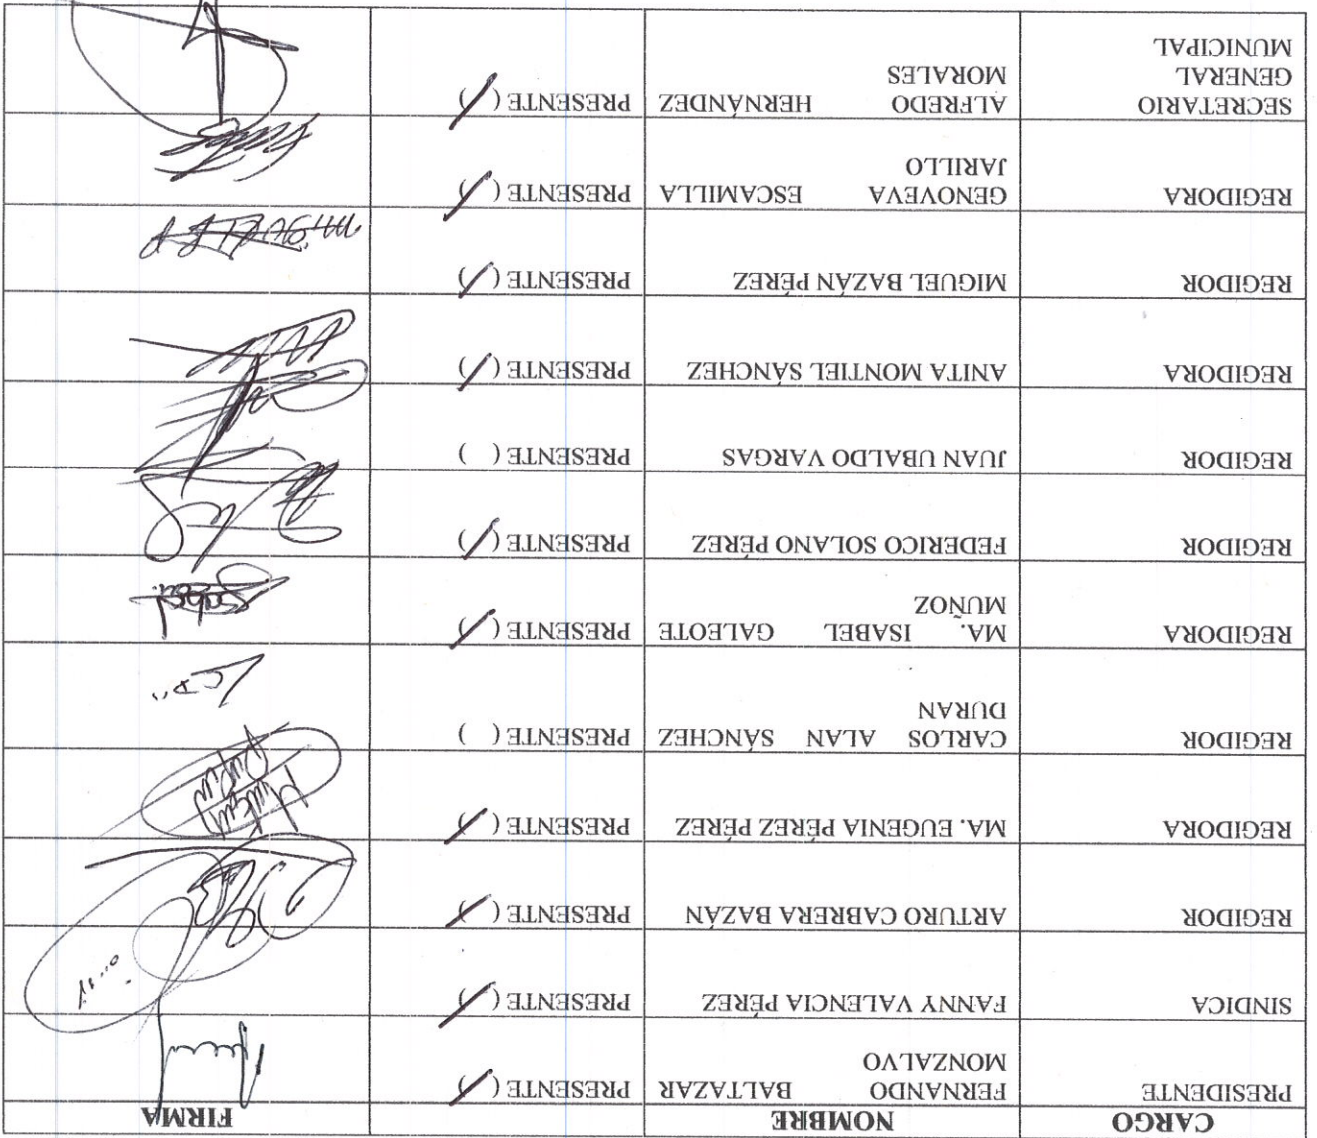 CARGO NOMBRE FIRMA
PRESIDENTE FERNANDO BALTAZAR PRESENTE ( / )
MONZALVO
SINDICA FANNY VALENCIA PÉREZ PRESENTE ( / )
REGIDOR ARTURO CABRERA BAZÁN PRESENTE ( / )
REGIDORA MA. EUGENIA PÉREZ PÉREZ PRESENTE ( / )
REGIDOR CARLOS ALAN SÁNCHEZ PRESENTE ( )
DURAN
REGIDORA MA. ISABEL GALEOTE PRESENTE ( / )
MUÑOZ
REGIDOR FEDERICO SOLANO PÉREZ PRESENTE ( / )
REGIDOR JUAN UBALDO VARGAS PRESENTE ( )
REGIDORA ANITA MONTIEL SÁNCHEZ PRESENTE ( / )
REGIDOR MIGUEL BAZÁN PÉREZ PRESENTE ( / )
REGIDORA GENOVEVA ESCAMILLA PRESENTE ( / )
JARILLO
SECRETARIO ALFREDO HERNÁNDEZ PRESENTE ( / )
GENERAL MORALES
MUNICIPAL